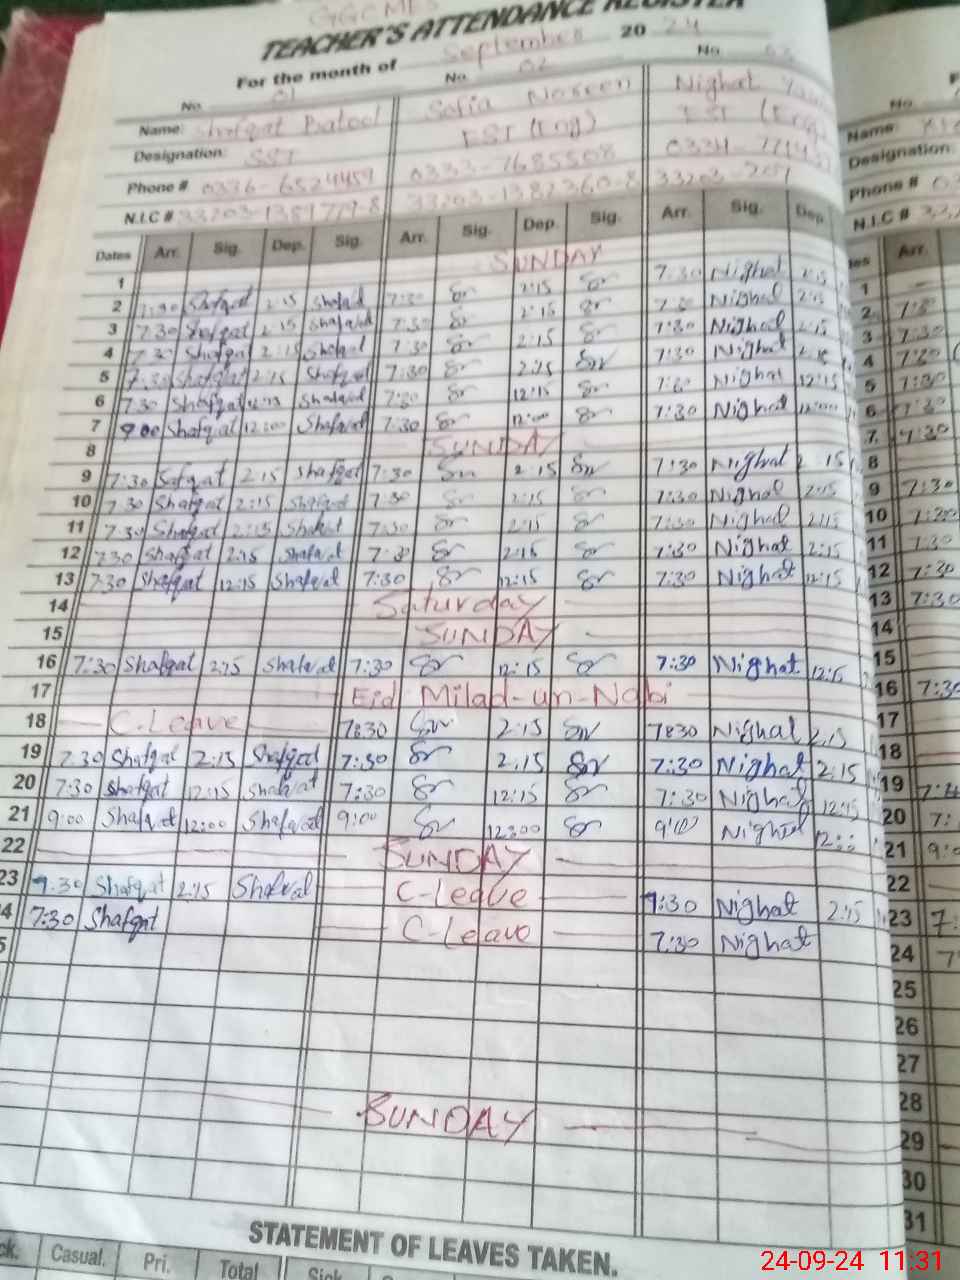 GGCMES
TEACHER'S ATTENDANCE REGISTER
For the month of September 2024
No. 01 No. 02 No. 03
Name: Shafqat Batool Sofia Noreen Nighat
Designation: SST EST (Eng) EST (Eng)
Phone # 0336-6524459 0333-7685508 0334-
N.I.C # 33203-1382360-8 33203-
Dates Arr. Sig. Dep. Sig. Arr. Sig. Dep. Sig. Arr. Sig. Dep
1 SUNDAY
2 7:30 Shafqat 2:15 Shafqat 7:30 Sr 2:15 Sr 7:30 Nighat 2:15
3 7:30 Shafqat 2:15 Shafqat 7:30 Sr 2:15 Sr 7:30 Nighat 2:15
4 7:30 Shafqat 2:15 Shafqat 7:30 Sr 2:15 Sr 7:30 Nighat 2:15
5 7:30 Shafqat 2:15 Shafqat 7:30 Sr 2:15 Sr 7:30 Nighat 2:15
6 7:30 Shafqat 12:15 Shafqat 7:30 Sr 12:15 Sr 7:30 Nighat 12:15
7 9:00 Shafqat 12:00 Shafqat 7:30 Sr 12:00 Sr 7:30 Nighat 12:00
8 SUNDAY
9 7:30 Safqat 2:15 Shafqat 7:30 Sr 2:15 Sr 7:30 Nighat 2:15
10 7:30 Shafqat 2:15 Shafqat 7:30 Sr 2:15 Sr 7:30 Nighat 2:15
11 7:30 Shafqat 2:15 Shafqat 7:30 Sr 2:15 Sr 7:30 Nighat 2:15
12 7:30 Shafqat 2:15 Shafqat 7:30 Sr 2:15 Sr 7:30 Nighat 2:15
13 7:30 Shafqat 12:15 Shafqat 7:30 Sr 12:15 Sr 7:30 Nighat 12:15
14 Saturday
15 SUNDAY
16 7:30 Shafqat 2:15 Shafqat 7:30 Sr 12:15 Sr 7:30 Nighat 12:15
17 Eid Milad-un-Nabi
18 C-Leave 7:30 Sr 2:15 Sr 7:30 Nighat 2:15
19 7:30 Shafqat 2:15 Shafqat 7:30 Sr 2:15 Sr 7:30 Nighat 2:15
20 7:30 Shafqat 12:15 Shafqat 7:30 Sr 12:15 Sr 7:30 Nighat 12:15
21 9:00 Shafqat 12:00 Shafqat 9:00 Sr 12:00 Sr 9:00 Nighat 12:00
22 SUNDAY
23 7:30 Shafqat 2:15 Shafqat C-Leave 7:30 Nighat 2:15
4 7:30 Shafqat C-Leave 7:30 Nighat
5
SUNDAY
STATEMENT OF LEAVES TAKEN.
ck. Casual. Pri. Total Sick
No.
Name:
Designation:
Phone # 03
N.I.C #
es Arr.
1
2 7:3
3 7:30
4 7:30
5 7:30
6 7:30
7 7:30
8
9 7:30
10 7:30
11 7:30
12 7:30
13 7:30
14
15
16 7:30
17
18
19
20 7:
21 9:0
22
23 7:
24 7
25
26
27
28
29
30
31
24-09-24 11:31